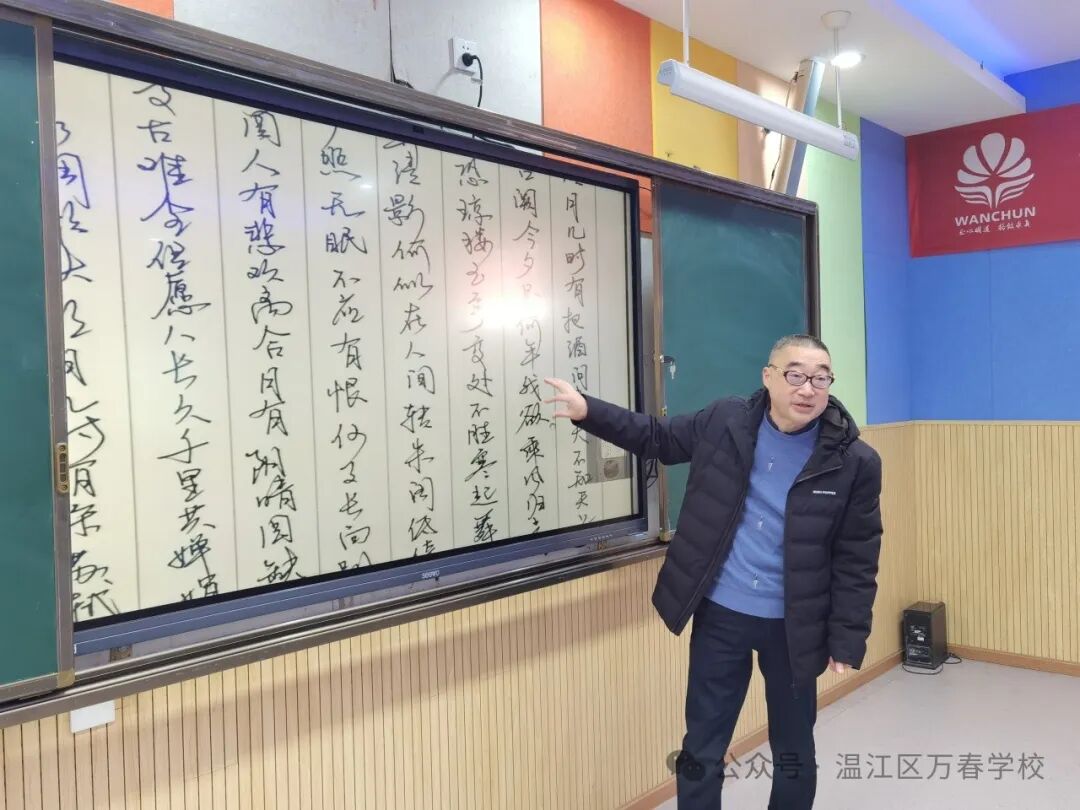 月几时有把酒问天不知天
阙今夕是何年我欲乘风归
恐琼楼玉宇高处不胜寒起舞
清影何似在人间转朱阁低绮
照无眠不应有恨何事长向别
圆人有悲欢离合月有阴晴圆缺
古难全但愿人长久千里共婵娟
月几时有宋苏轼
seewo
WANCHUN
公众号 · 温江区万春学校